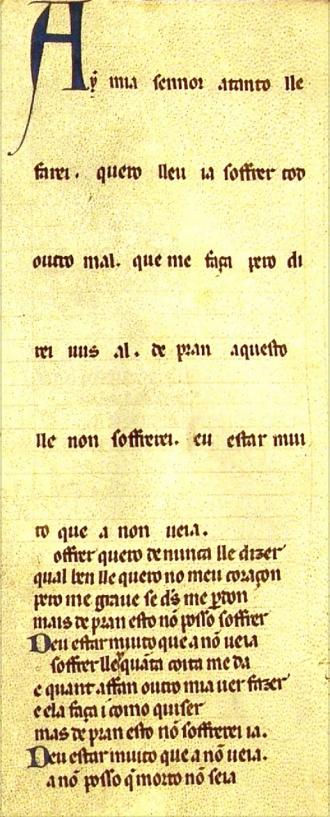 Aỹ mia sennor atanto lle
farei. quero lleu ia soffrer tod
outro mal. que me faça pero di
rei uus al. de pran aquesto
lle non soffrerei. eu estar mui
to que a non ueia.
offrer quero de nunca lle dizer
qual ben lle quero no meu coraçon
pero me graue se d̃s me pdon
mais de pran esto nõ posso soffrer
Deu estar muito que a nõ ueia
soffrer lle quãta coita me da
e quant affan outro mia uer fazer
e ela faça i como quiser
mas de pran esto nõ soffrerei ia.
Deu estar muito que a nõ ueia.
a nõ posso q̃ morto nõ seia